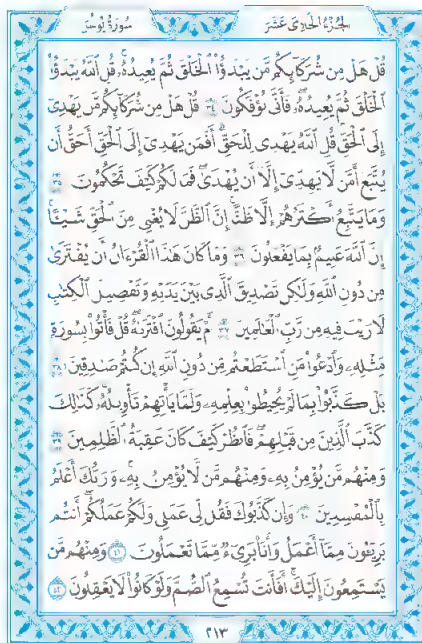 الجزء الحادي عشر
سورة يونس
قُلْ هَلْ مِن شُرَكَآئِكُم مَّن يَبْدَؤُا۟ الْخَلْقَ ثُمَّ يُعِيدُهُۥ ۚ قُلِ اللَّهُ يَبْدَؤُا۟
الْخَلْقَ ثُمَّ يُعِيدُهُۥ ۖ فَأَنَّىٰ تُؤْفَكُونَ ٣٤ قُلْ هَلْ مِن شُرَكَآئِكُم مَّن يَهْدِىٓ
إِلَى الْحَقِّ ۚ قُلِ اللَّهُ يَهْدِى لِلْحَقِّ ۗ أَفَمَن يَهْدِىٓ إِلَى الْحَقِّ أَحَقُّ أَن
يُتَّبَعَ أَمَّن لَّا يَهِدِّىٓ إِلَّآ أَن يُهْدَىٰ ۖ فَمَا لَكُمْ كَيْفَ تَحْكُمُونَ ٣٥
وَمَا يَتَّبِعُ أَكْثَرُهُمْ إِلَّا ظَنًّا ۚ إِنَّ الظَّنَّ لَا يُغْنِى مِنَ الْحَقِّ شَيْـًٔا ۚ
إِنَّ اللَّهَ عَلِيمٌۢ بِمَا يَفْعَلُونَ ٣٦ وَمَا كَانَ هَٰذَا الْقُرْءَانُ أَن يُفْتَرَىٰ
مِن دُونِ اللَّهِ وَلَٰكِن تَصْدِيقَ الَّذِى بَيْنَ يَدَيْهِ وَتَفْصِيلَ الْكِتَٰبِ
لَا رَيْبَ فِيهِ مِن رَّبِّ الْعَٰلَمِينَ ٣٧ أَمْ يَقُولُونَ افْتَرَىٰهُ ۖ قُلْ فَأْتُوا۟ بِسُورَةٍ
مِّثْلِهِۦ وَادْعُوا۟ مَنِ اسْتَطَعْتُم مِّن دُونِ اللَّهِ إِن كُنتُمْ صَٰدِقِينَ ٣٨
بَلْ كَذَّبُوا۟ بِمَا لَمْ يُحِيطُوا۟ بِعِلْمِهِۦ وَلَمَّا يَأْتِهِمْ تَأْوِيلُهُۥ ۚ كَذَٰلِكَ
كَذَّبَ الَّذِينَ مِن قَبْلِهِمْ ۖ فَانظُرْ كَيْفَ كَانَ عَٰقِبَةُ الظَّٰلِمِينَ ٣٩
وَمِنْهُم مَّن يُؤْمِنُ بِهِۦ وَمِنْهُم مَّن لَّا يُؤْمِنُ بِهِۦ ۚ وَرَبُّكَ أَعْلَمُ
بِالْمُفْسِدِينَ ٤٠ وَإِن كَذَّبُوكَ فَقُل لِّى عَمَلِى وَلَكُمْ عَمَلُكُمْ ۖ أَنتُم
بَرِيٓـُٔونَ مِمَّآ أَعْمَلُ وَأَنَا۠ بَرِىٓءٌ مِّمَّا تَعْمَلُونَ ٤١ وَمِنْهُم مَّن
يَسْتَمِعُونَ إِلَيْكَ ۚ أَفَأَنتَ تُسْمِعُ الصُّمَّ وَلَوْ كَانُوا۟ لَا يَعْقِلُونَ ٤٢
٢١٣